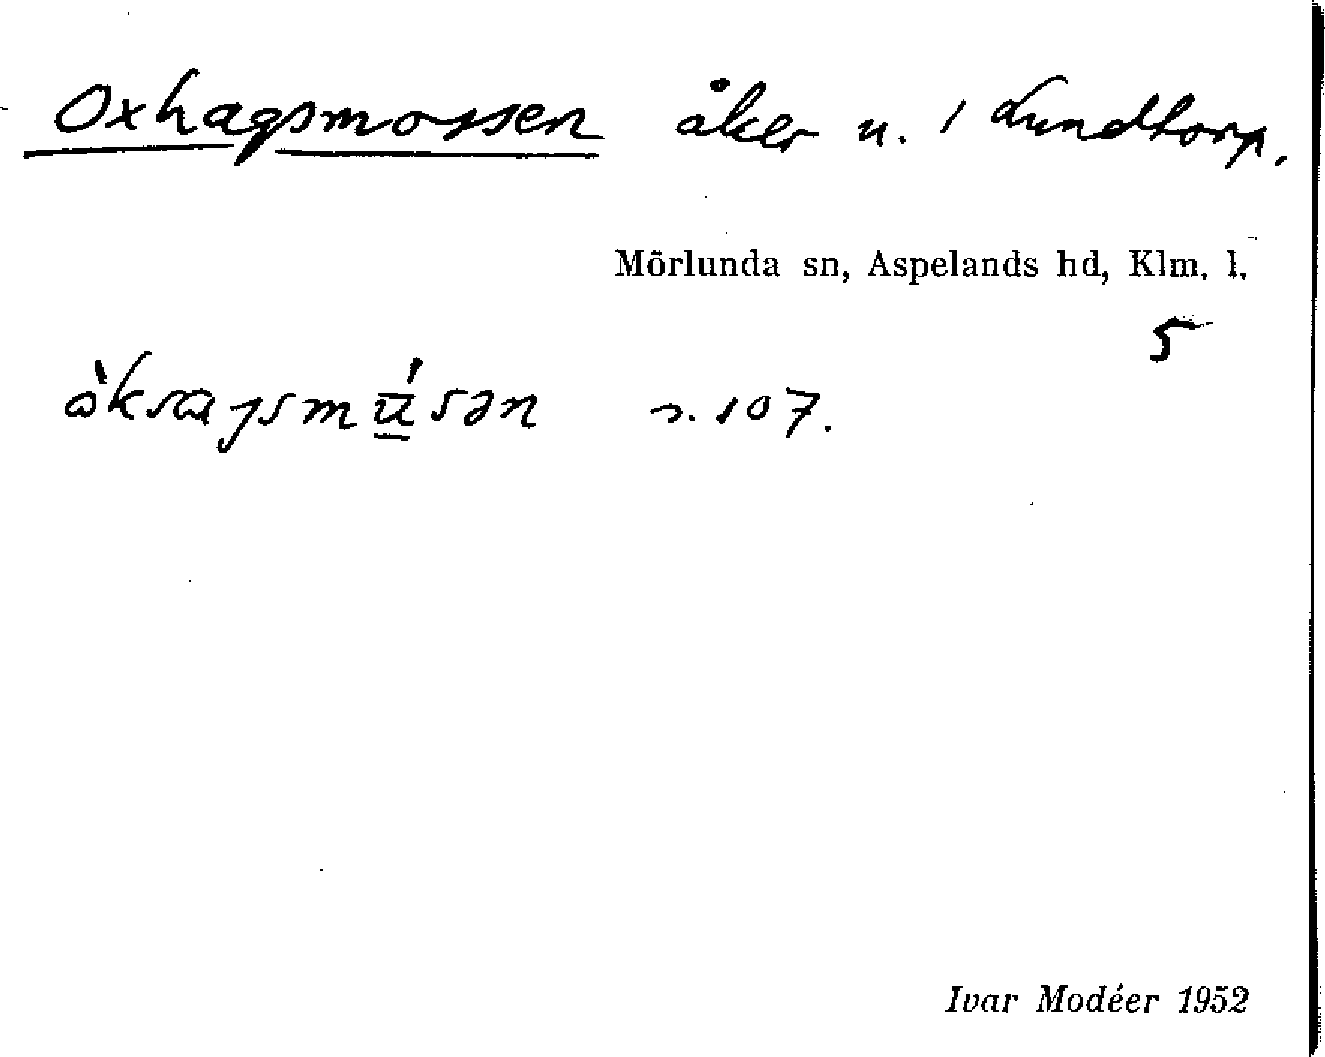 Oxhagsmossen åker u. 1 Lundtorp.
Mörlunda sn, Aspelands hd, Klm. l.
5
107.
Ivar Modéer 1952